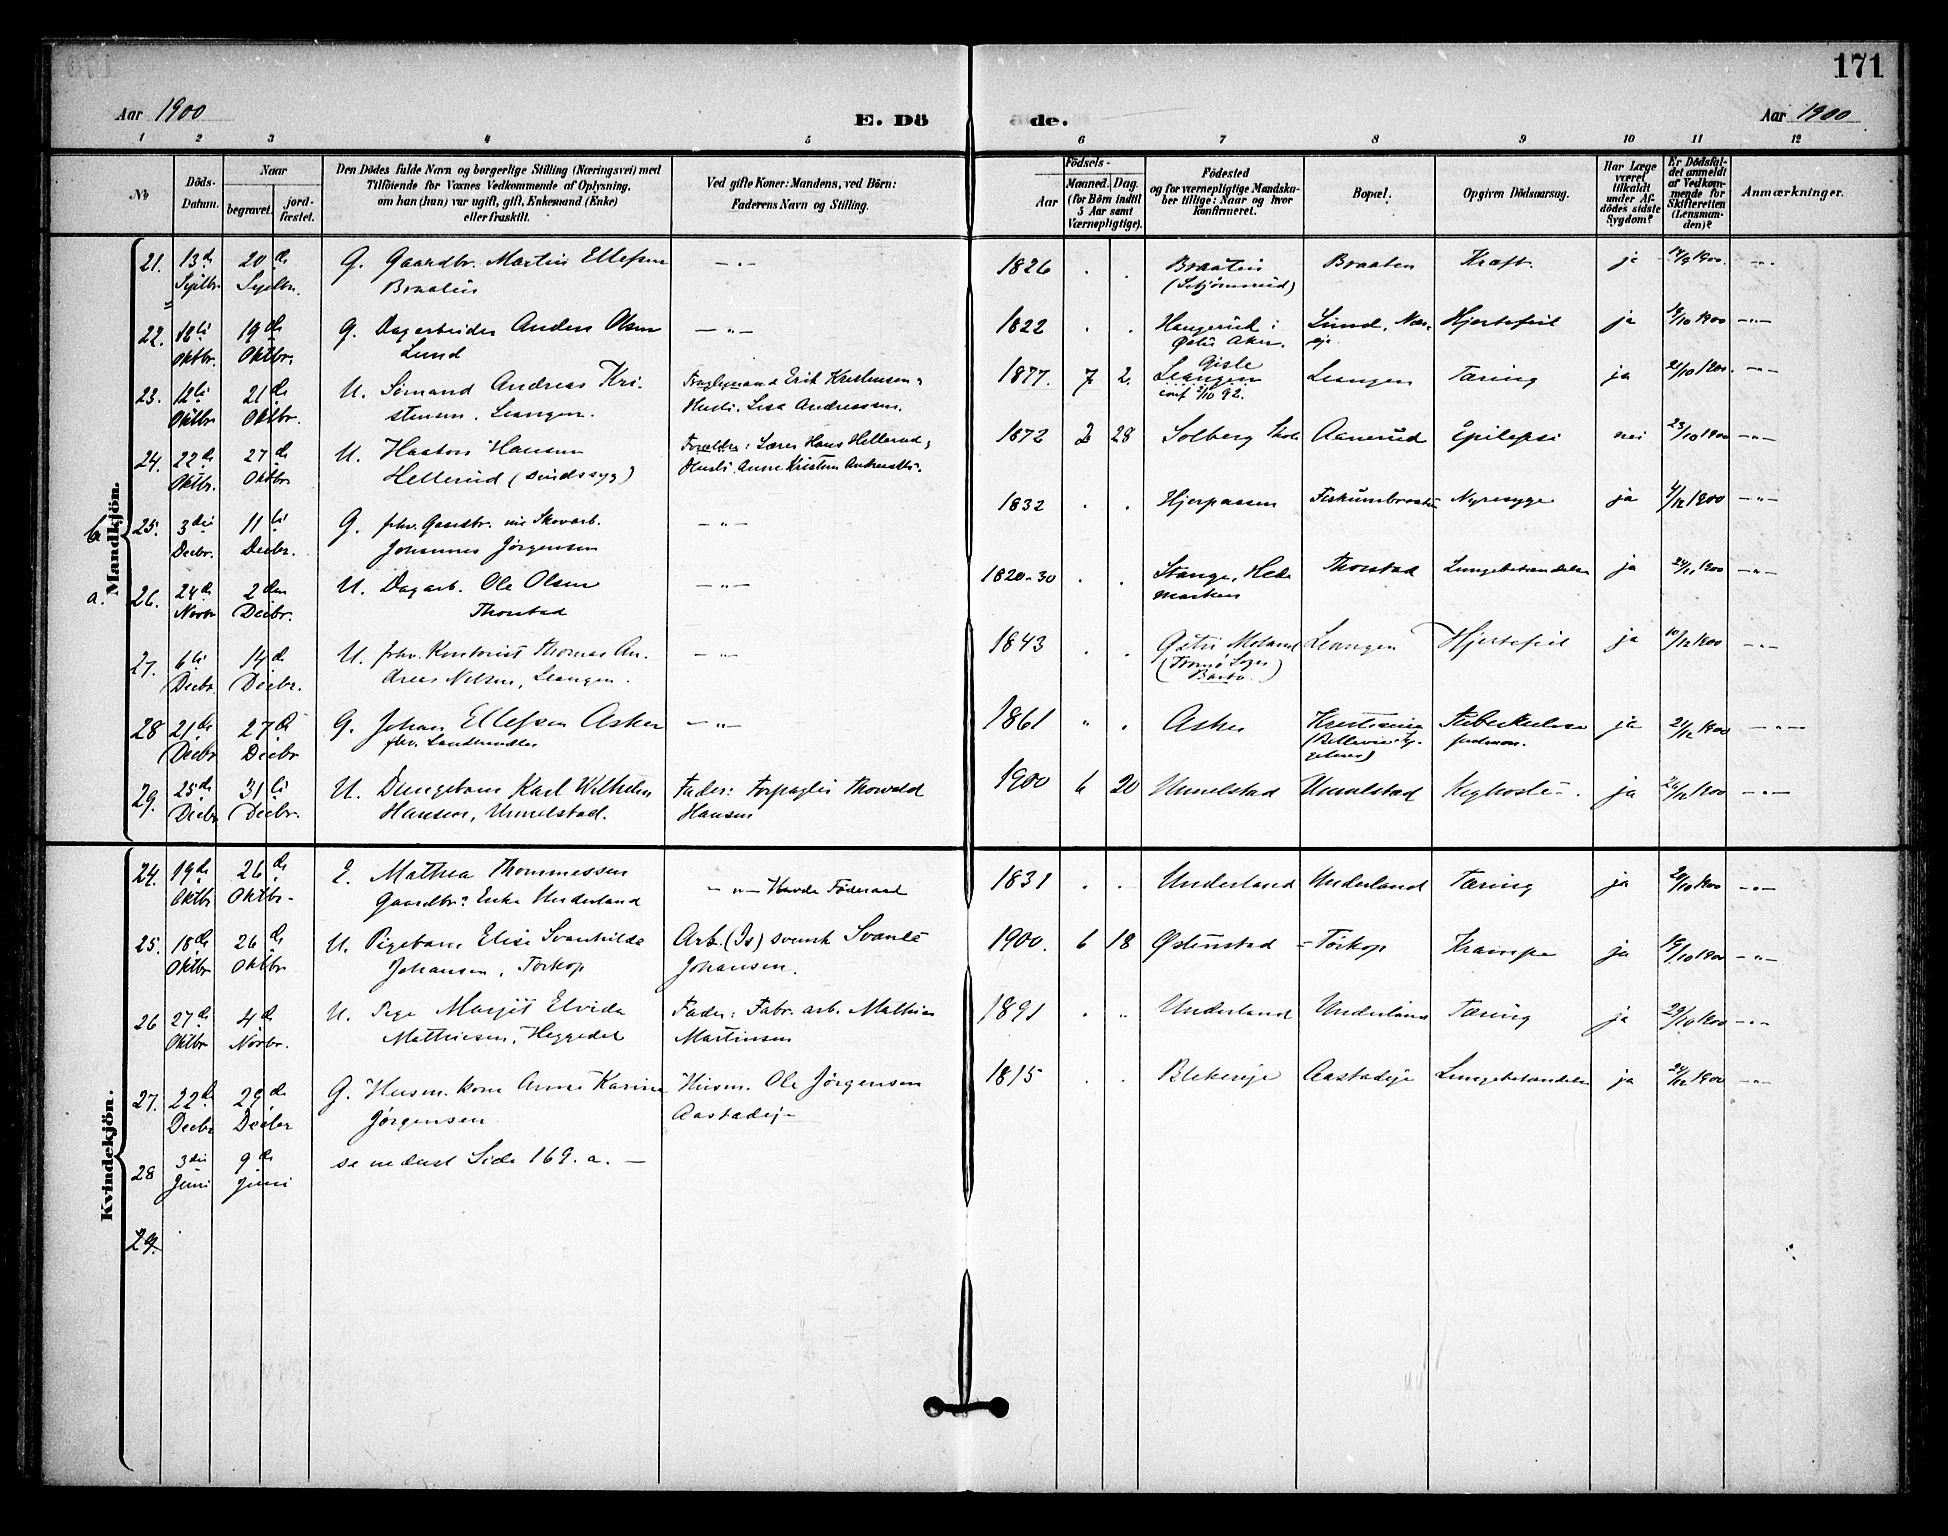 171
Aar 1900
E. Dö de.
Aar 1900
1 2 3 4 5 6 7 8 9 10 11 12
No
Döds-
Datum.
Naar
begravet.
jord-
fæstet.
Den Dödes fulde Navn og borgerlige Stilling (Næringsvei) med
Tilföiende for Voxnes Vedkommende af Oplysning.
om han (hun) var ugift, gift, Enkemand (Enke)
eller fraskilt.
Ved gifte Koner: Mandens, ved Börn:
Faderens Navn og Stilling.
Födsels-
Aar
Maaned.
Dag.
(for Börn indtil
5 Aar samt
Værnepligtige).
Födested
og for værnepligtige Mandska-
ber tillige: Naar og hvor
konfirmeret.
Bopæl.
Opgiven Dödsaarsag.
Har Læge
været
tilkaldt
under Af-
dödes sidste
Sygdom?
Er Dödsfal-
det anmeldt
af Vedkom-
mende for
Skifteretten
(Lensman-
den)?
Anmærkninger.
Mandkjön.
21. 13de 20de G. Gaardbr. Martin Ellefsen — „ — 1826 . . Braaten Braaten Kræft. ja 17/9 1900. — „ —
Septbr. Septbr. Braaten
22. 12te 19de G. Dagarbeider Anders Olsen — „ — 1822 . . Haugerud i Lund, Næs- Hjertefeil ja 19/10 1900 — „ —
Oktbr. Oktbr. Lund Østre Aker. eje.
23. 12te 21de U. Sømand Andreas Kri- Erik Kristensen 1877. 7 2. Gisle Leangen Leangen Tæring ja 21/10 1900. — „ —
Oktbr. Oktbr. stensen. Leangen. Hustr. Lisa Andreassen. conf 2/10 92.
24. 22de 27de U. Haaton Hansen Forældre: Lærer Hans Hellerud 1872 2 28 Solberg Skole Aanerud Epilepsi nei 23/10 1900 — „ —
Oktbr. Oktbr Hellerud (Sindssyg) Hustr. Anne Kristine
b. 25. 3die 11te G. fhv. Gaardbr. nu Skovarb. — „ — 1832 . . Hjerpaasen Nyresyge ja 4/12 1900 — „ —
Decbr. Decbr. Johannes Jørgensen
a. 26. 24de 2den U. Dagarb. Ole Olsen — „ — 1820-30 . . Stange, Hede- Thorstad Lungebetændelse ja 1900 — „ —
Novbr Decbr. Thorstad marken
27. 6te 14de U. fhv. Kontorist Thomas An- — „ — 1843 . . Østre Moland Leangen Hjertefeil ja 10/12 1900 — „ —
Decbr. Decbr. dreas Nilsen, Leangen. (Tromø Sogn
Barbo.)
28 21de 27de G. Johan Ellefsen Asker — „ — 1861 „ . Asker Kristiania Tuberkulose ja 21/12 1900 — „ —
Decbr Decbr fhv. Landhandler pulmon.
29. 25de 31te U. Drengebarn Karl Wilhelm Fader: Forpagter Thorvald 1900 6 20 Unnelstad Unnelstad Kighoste ja 26/12 1900 — „ —
Decbr Decbr. Hansen, Unnelstad. Hansen
Kvindekjön.
24. 19de 26de E. Mathea Thommessen — „ — Havde Føderaad 1831 . . Underland Underland Tæring ja 20/10 1900 — „ —
Oktbr Oktbr. Gaardbr. Enke Underland
25. 18de 26de U. Pigebarn Elise Svanhilde Arb. (Is) svensk Svante 1900. 6 18 Østenstad Torkop Krampe ja 19/10 1900 — „ —
Oktbr Oktbr Johansen, Torkop Johansen.
26 27de 4de U. Pige Margit Elvida Fader: Fabr. arb. Mathias 1891 . „ Underland Underland Tæring ja 29/10 1900 — „ —
Oktbr Novbr. Mathiesen, Heggedal Martinsen
27. 22de 29de G. Husm. kone Anne Karine Husm. Ole Jørgensen 1815 . . Blekereje Aastadeje Lungebetændelse ja 24/12 1900 — „ —
Decbr Decbr Jørgensen Aastadej-
28 3die 9de se nederst Side 169. a. —
Juni Juni
29.